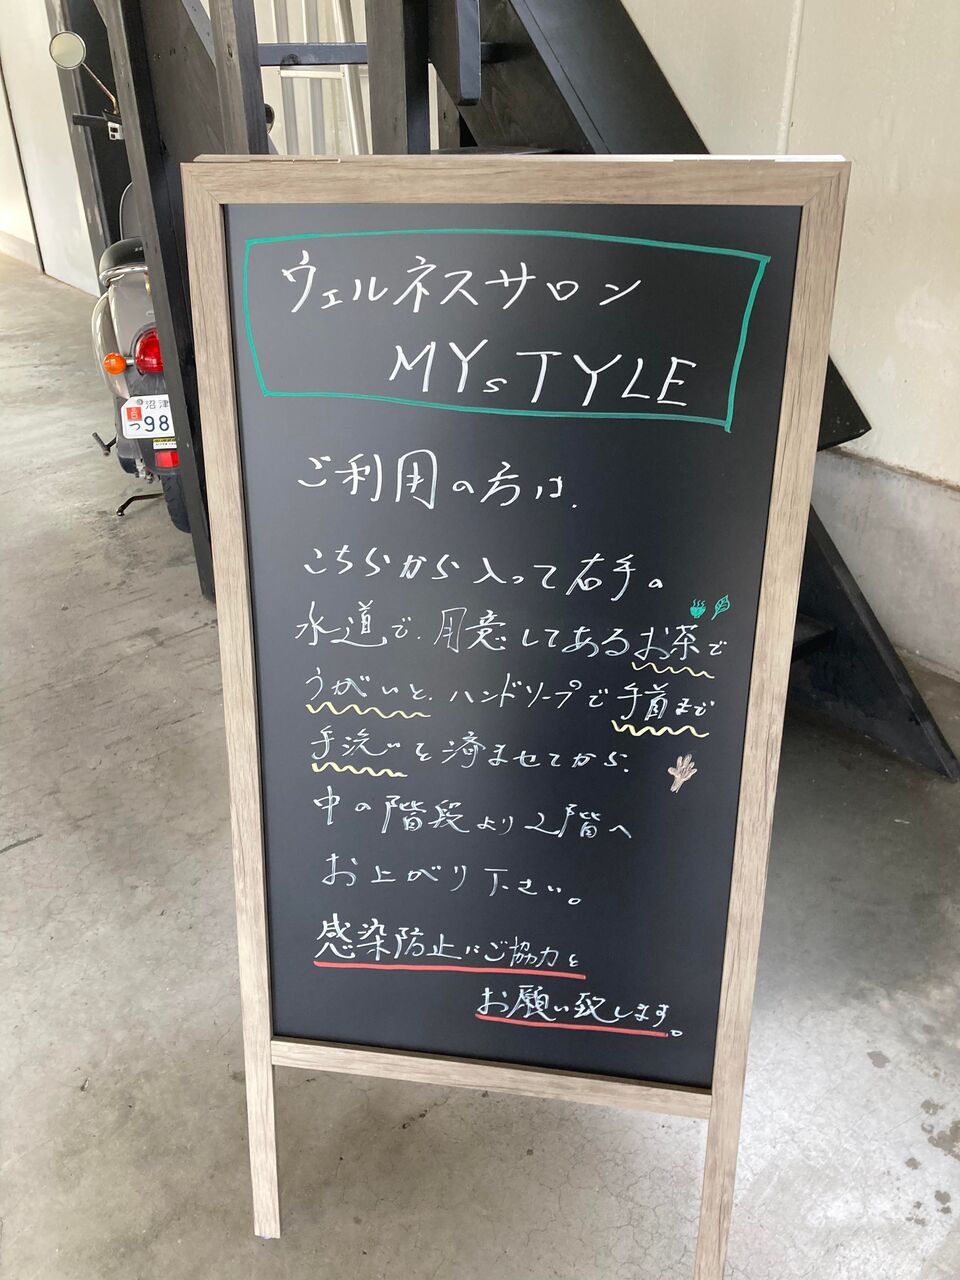 ウェルネスサロン
MYsTYLE
ご利用の方は、
こちらから入って右手の
水道で、用意してあるお茶で
うがいと、ハンドソープで手首まで
手洗いを済ませてから、
中の階段より2階へ
お上がり下さい。
感染防止にご協力を
お願い致します。
沼津
98